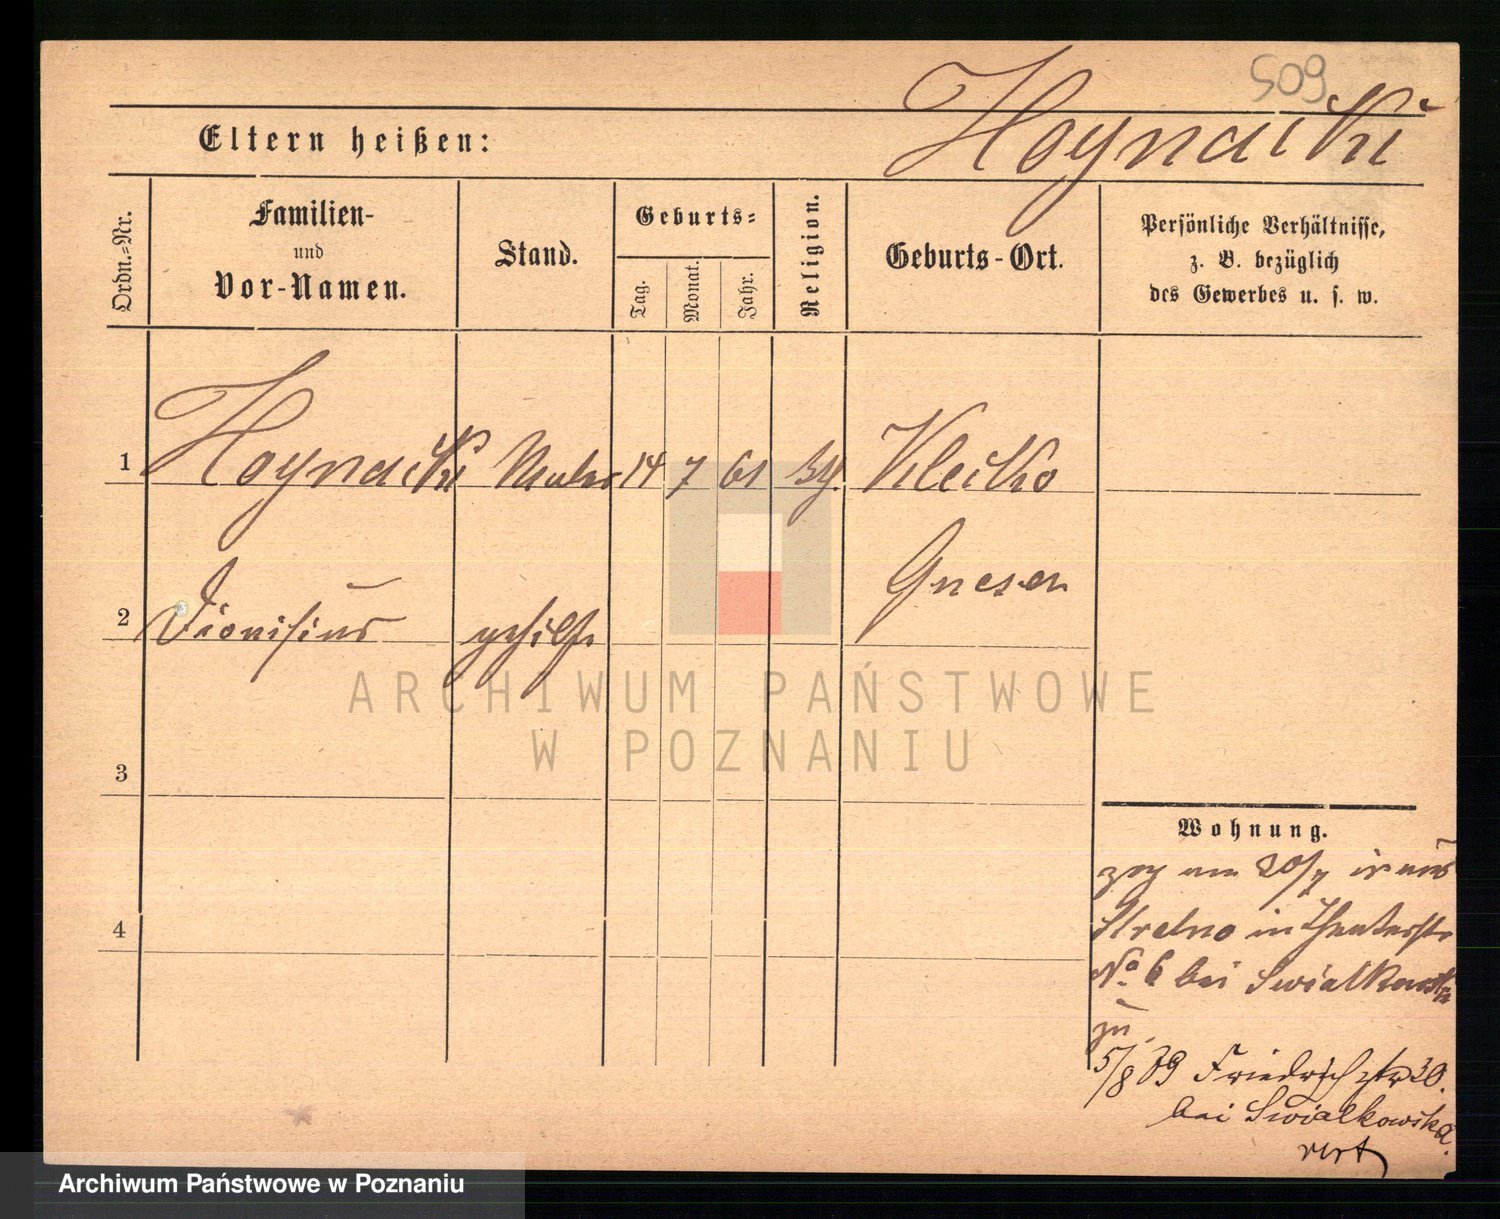 509
Hoynacki
Eltern heißen:
Ordn.=Nr.
Familien-
und
Vor-Namen.
Stand.
Geburts=
Tag.
Monat.
Jahr.
Religion.
Geburts-Ort.
Persönliche Verhältnisse,
z. B. bezüglich
des Gewerbes u. s. w.
1 Hoynacki Maler 14 7 61 Klecko
Gnesen
2 Dionisius gehilfe
ARCHIWUM PAŃSTWOWE
W POZNANIU
3
4
Wohnung.
zog am 20/7 aus
Strelno in Theaterstr
No 6 bei Swialkowska
zu
5/8 89 Friedrichstr 30.
bei Swialkowska.
Archiwum Państwowe w Poznaniu